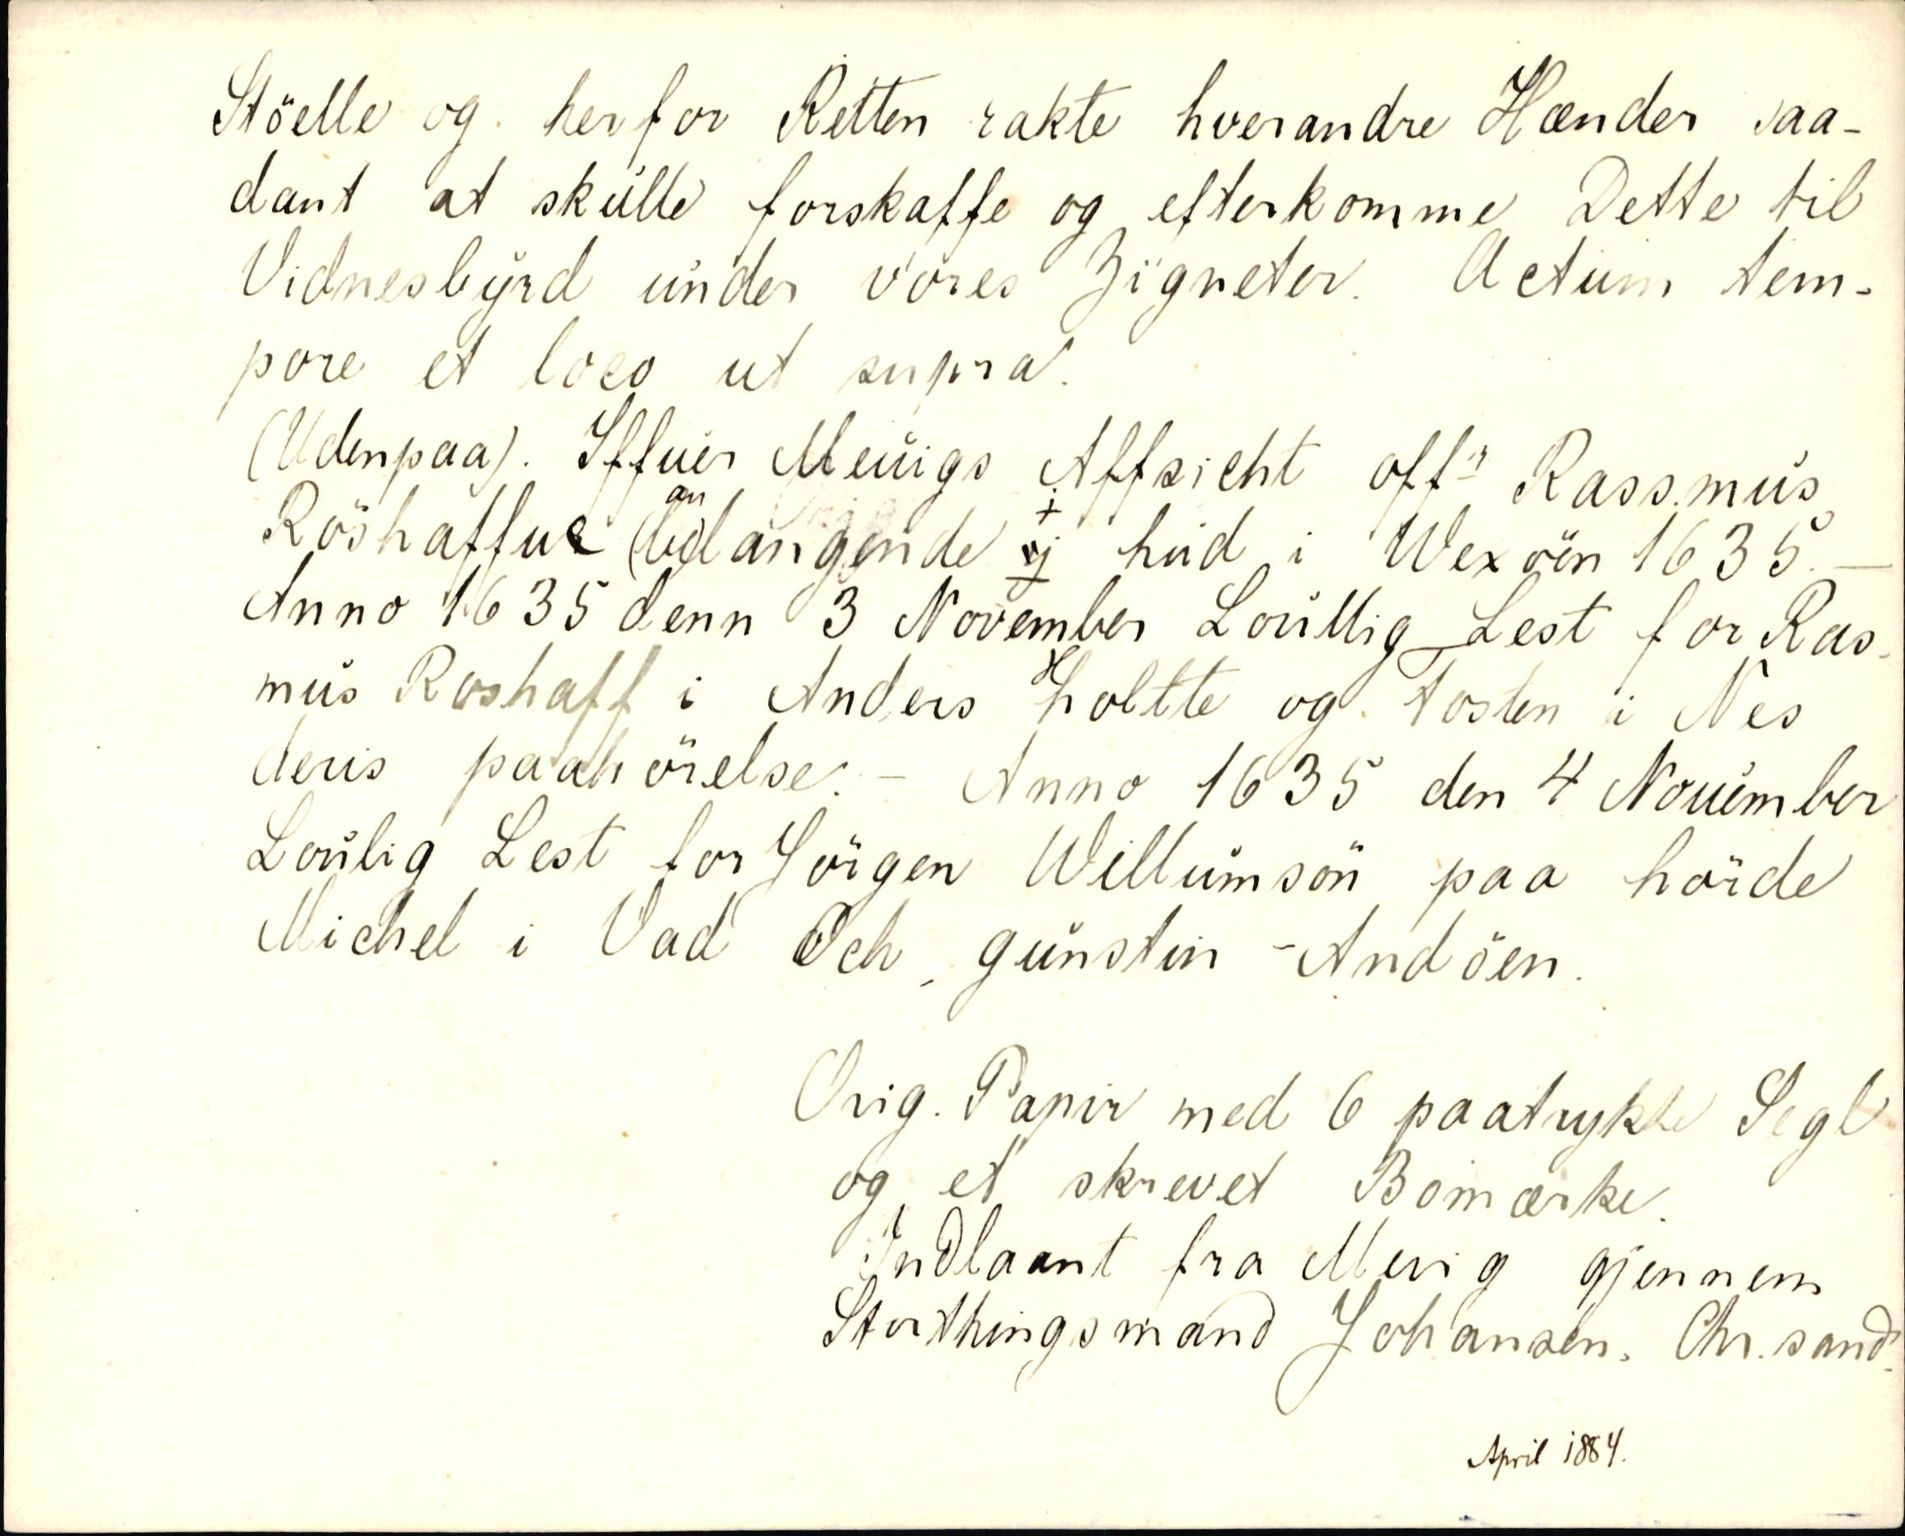 Stöelle og. her for Retten rakte hverandre Hænder saa-
dant at skulle forskaffe og efterkomme Dette til
Vidnesbyrd under vores Zigneter. Actum tem-
pore et loco ut supra.
(Udenpaa). Iffuer Meuigs Affsicht offr Rassmus
Röshaffue (belangende vj hud i Wexöen 1635. —
Anno 1635 denn 3 November Loullig Lest for Ras-
mus Roshaff i Anders Holtte og tosten i Nes
deris paahörelse. – Anno 1635 den 4 Nouember
Loulig Lest for Jörgen Willumsön paa hörde
Michel i Vad Och gunstin Andöen.
Orig. Papir med 6 paatrykte Segl
og et skrevet Bomærke.
Indlaant fra Mevig gjennem
Storthingsmand Johansen. Chr.sand.
April 1884.